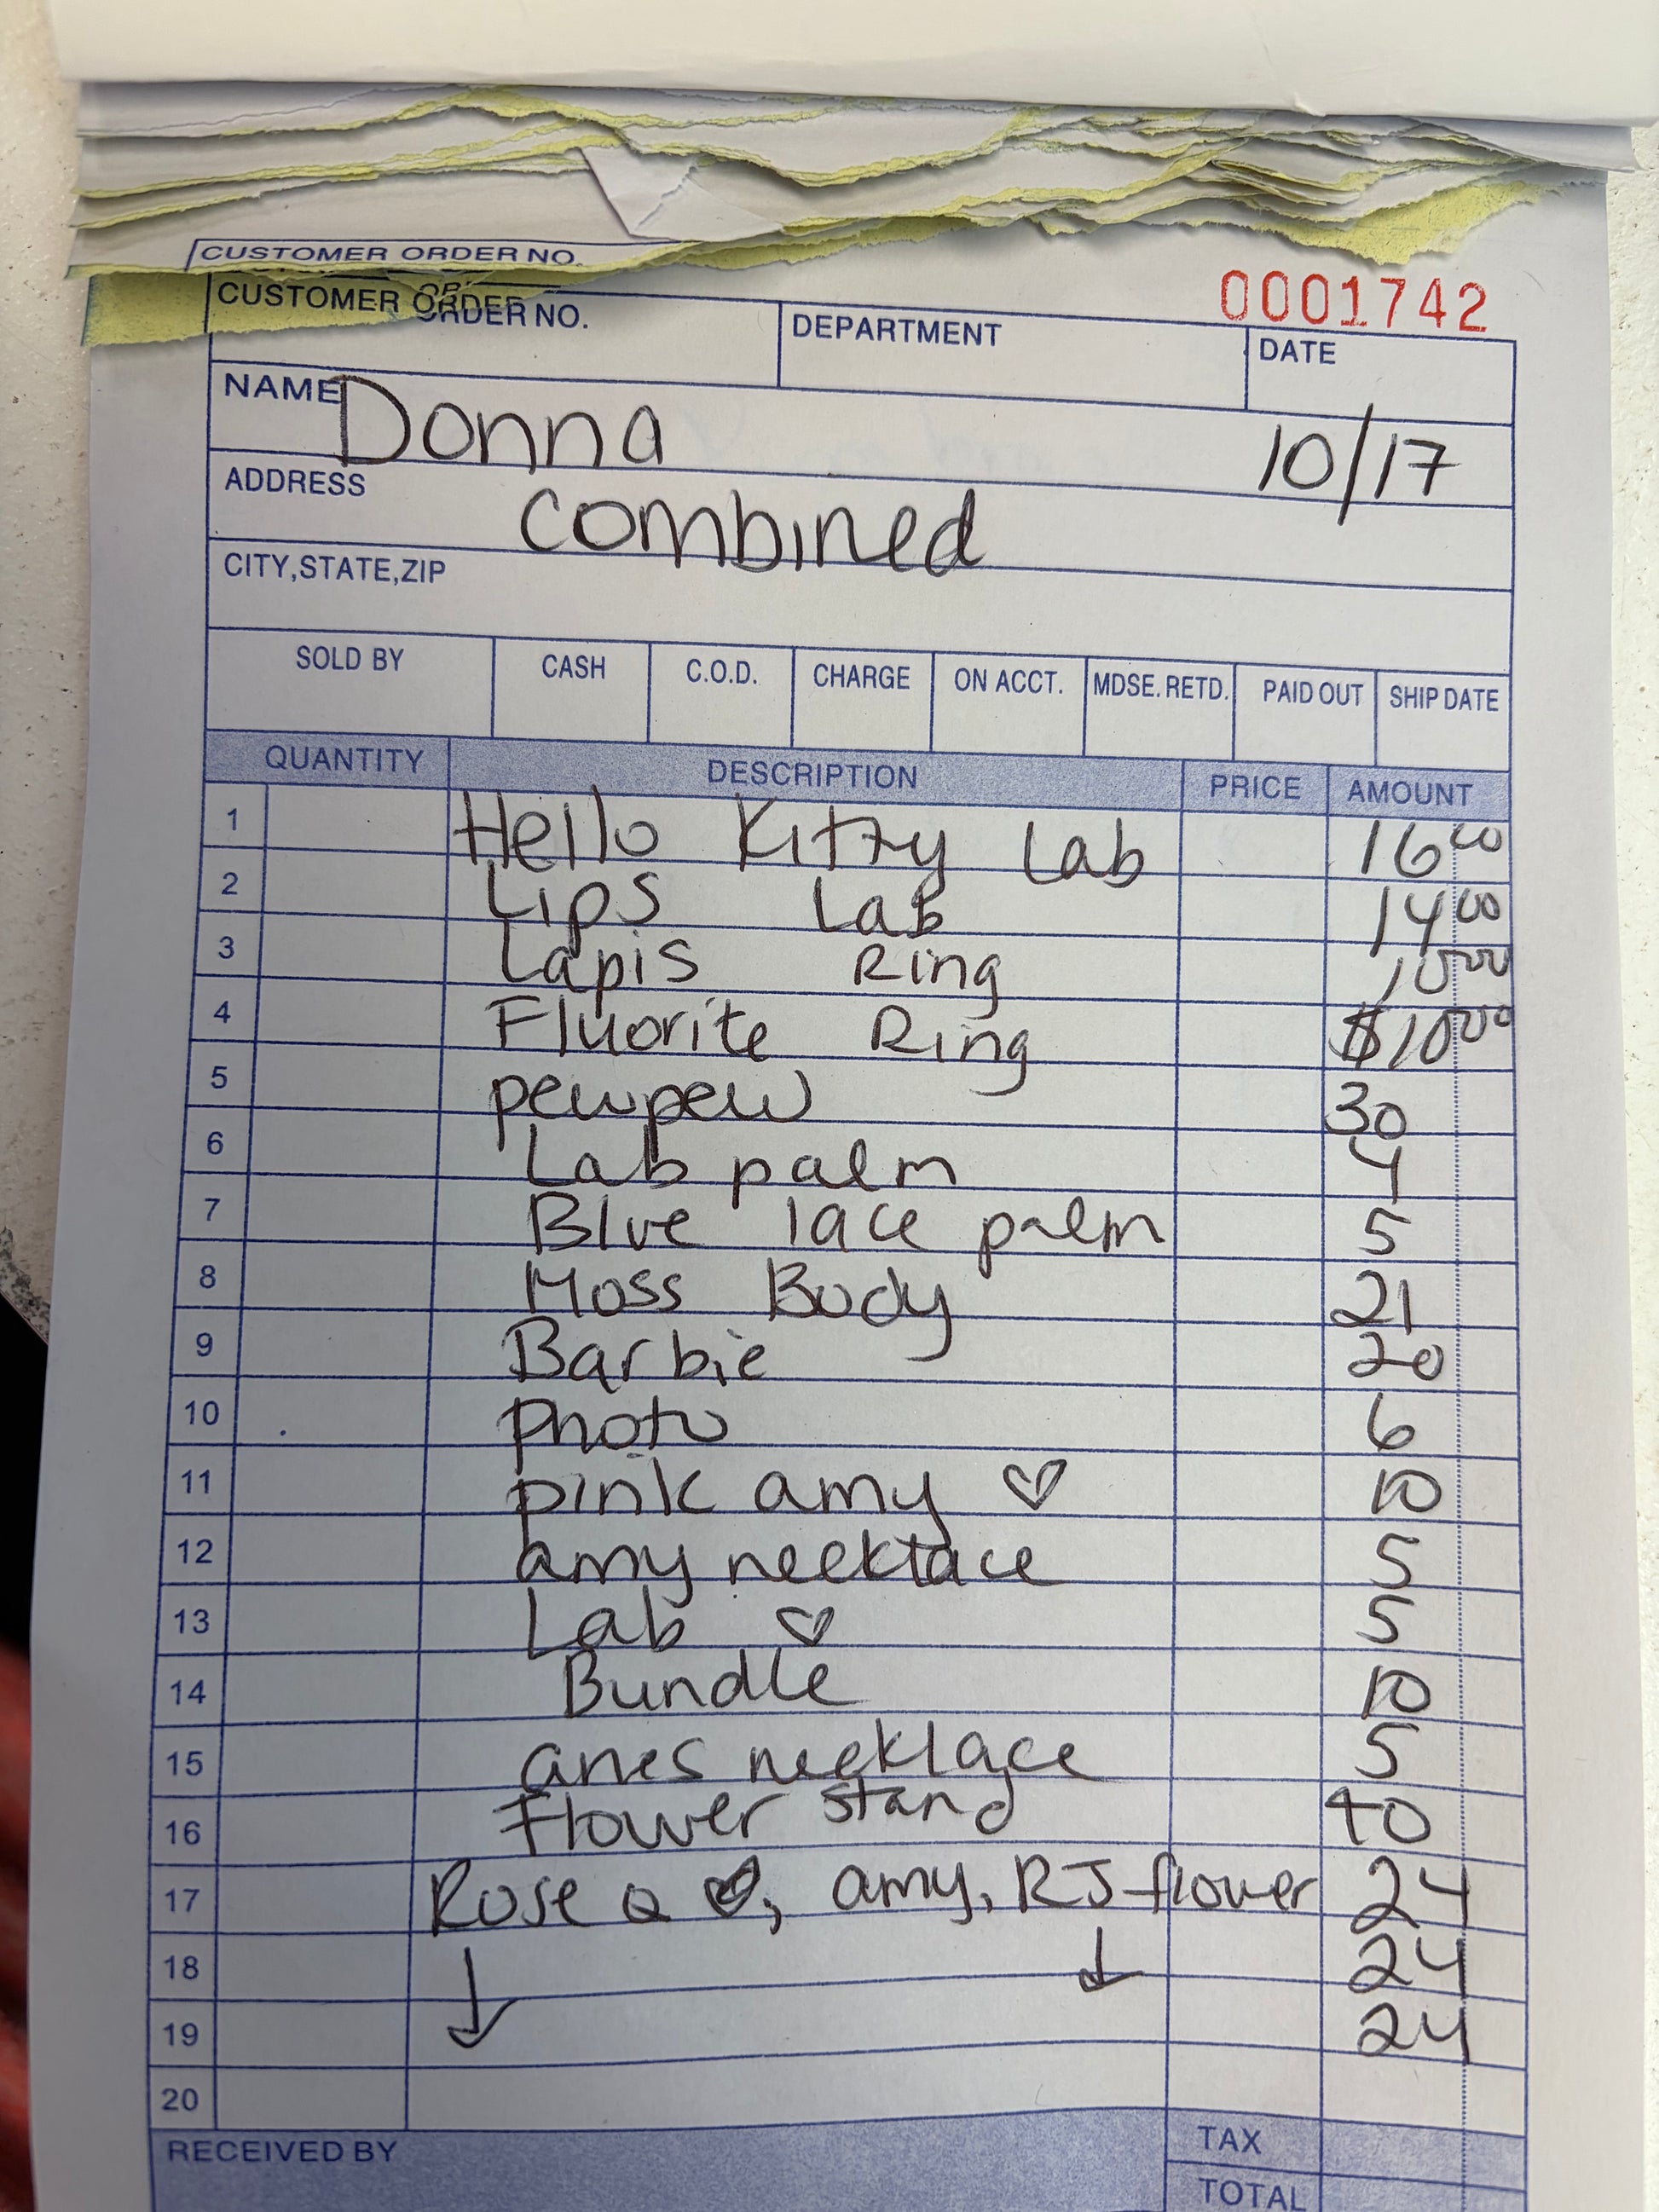 CUSTOMER ORDER NO.
0001742
CUSTOMER ORDER NO. DEPARTMENT DATE
NAME Donna 10/17
ADDRESS combined
CITY,STATE,ZIP
SOLD BY CASH C.O.D. CHARGE ON ACCT. MDSE. RETD. PAID OUT SHIP DATE
QUANTITY DESCRIPTION PRICE AMOUNT
1 Hello Kitty Lab 16 00
2 Lips Lab 14 00
3 Lapis Ring 10 00
4 Fluorite Ring $10 00
5 pewpew 30
6 Lab palm 4
7 Blue lace palm 5
8 Moss Body 21
9 Barbie 20
10 Photo 6
11 pink amy ♡ 10
12 amy necklace 5
13 Lab ♡ 5
14 Bundle 10
15 necklace 5
16 Flower stand 40
17 Rose Q ♡, amy, RJ flower 24
18 ↓ ↓ 24
19 24
20
RECEIVED BY TAX
TOTAL